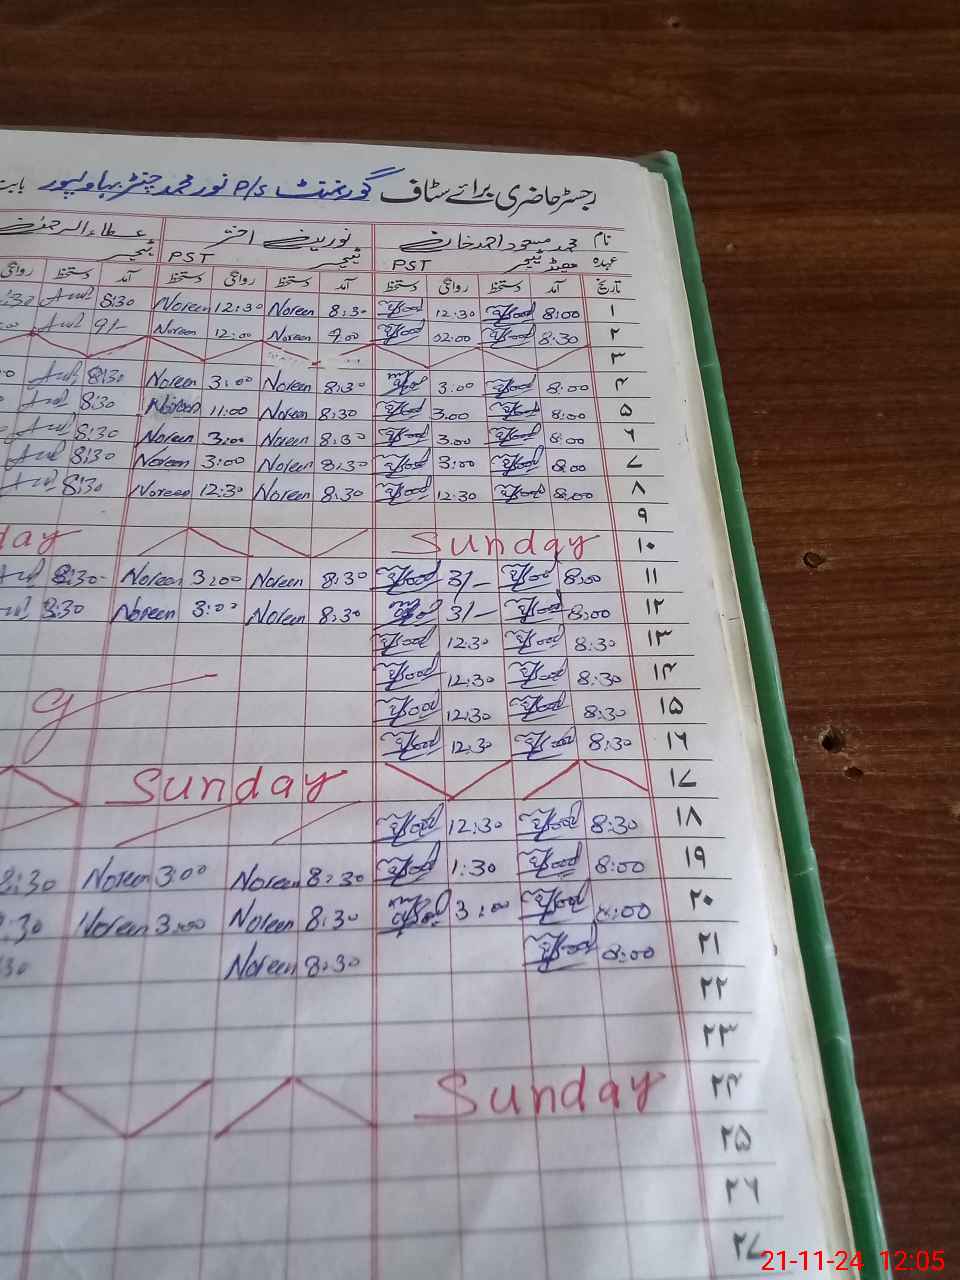 رجسٹر حاضری برائے سٹاف گورنمنٹ P/S نور محمد چنڑ بہاولپور بابت
نام محمد مسعود احمد خان نورین اختر عطاء الرحمٰن
عہدہ ہیڈ ٹیچر PST ٹیچر PST ٹیچر
تاریخ آمد دستخط روانگی دستخط آمد دستخط روانگی دستخط آمد دستخط روانگی
۱ 8:00 12:30 8:30 Noreen 12:30 Noreen 8:30 :30
۲ 8:30 02:00 9:00 Noreen 12:00 Noreen 9/-
۳
۴ 8:00 3:00 8:30 Noreen 3:00 Noreen 8:30
۵ 8:00 3:00 8:30 Noreen 11:00 Noreen 8:30
۶ 8:00 3:00 8:30 Noreen 3:00 Noreen 8:30
۷ 8:00 3:00 8:30 Noreen 3:00 Noreen 8:30
۸ 8:00 12:30 8:30 Noreen 12:30 Noreen 8:30
۹
۱۰ Sunday day
۱۱ 8:00 3/- 8:30 Noreen 3:00 Noreen 8:30
۱۲ 8:00 3/- 8:30 Noreen 3:00 Noreen 8:30
۱۳ 8:30 12:30
۱۴ 8:30 12:30
۱۵ 8:30 12:30
۱۶ 8:30 12:30
۱۷ Sunday
۱۸ 8:30 12:30
۱۹ 8:00 1:30 8:30 Noreen 3:00 Noreen 8:30
۲۰ 8:00 3:00 8:30 Noreen 3:00 Noreen :30
۲۱ 8:00 8:30 Noreen :30
۲۲
۲۳
۲۴ Sunday
۲۵
۲۶
۲۷
21-11-24 12:05